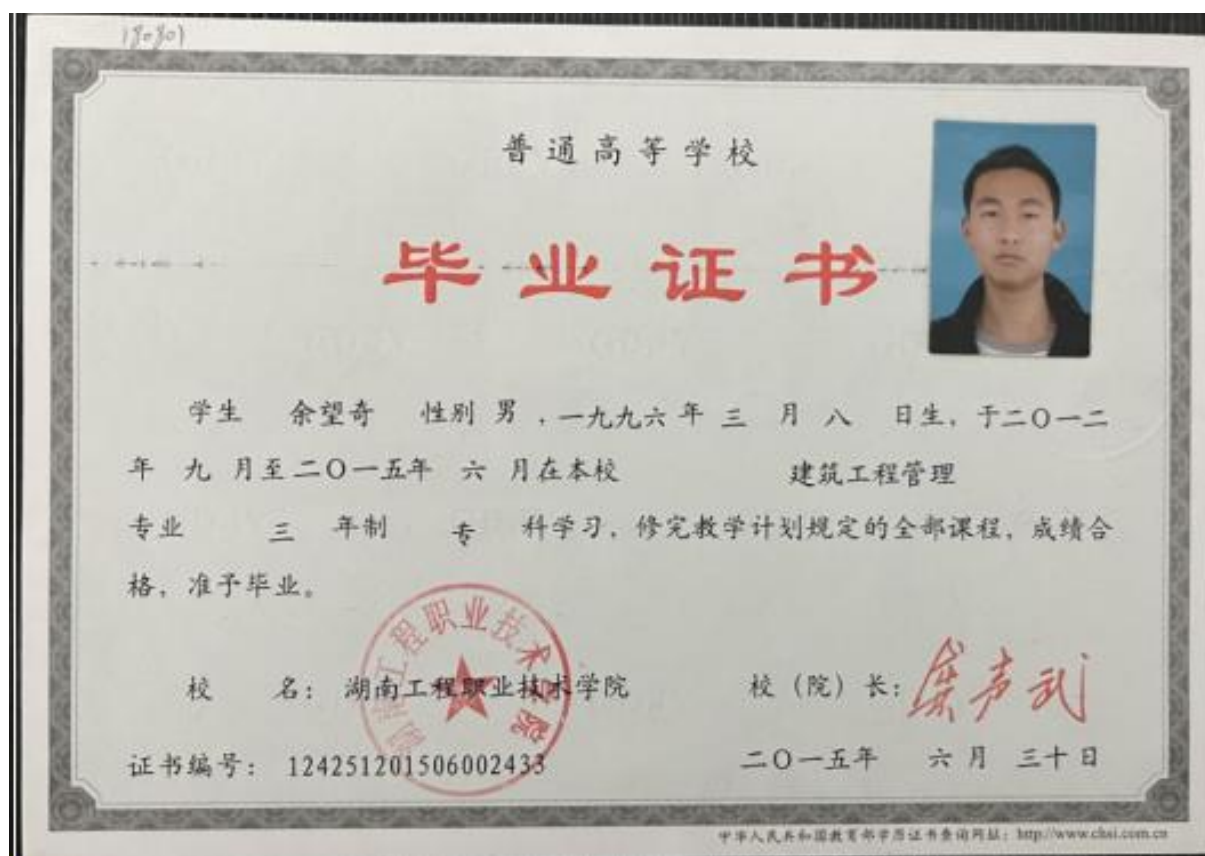 普通高等学校
毕业证书
学生 余望奇 性别 男,一九九六年 三 月 八 日生,于二〇一二
年 九 月至二〇一五年 六 月在本校 建筑工程管理
专业 三 年制 专 科学习,修完教学计划规定的全部课程,成绩合
格,准予毕业。
湖南工程职业技术学院
校 名: 湖南工程职业技术学院 校(院)长:
证书编号: 124251201506002433 二〇一五年 六月 三十日
中华人民共和国教育部学历证书查询网址: http://www.chsi.com.cn